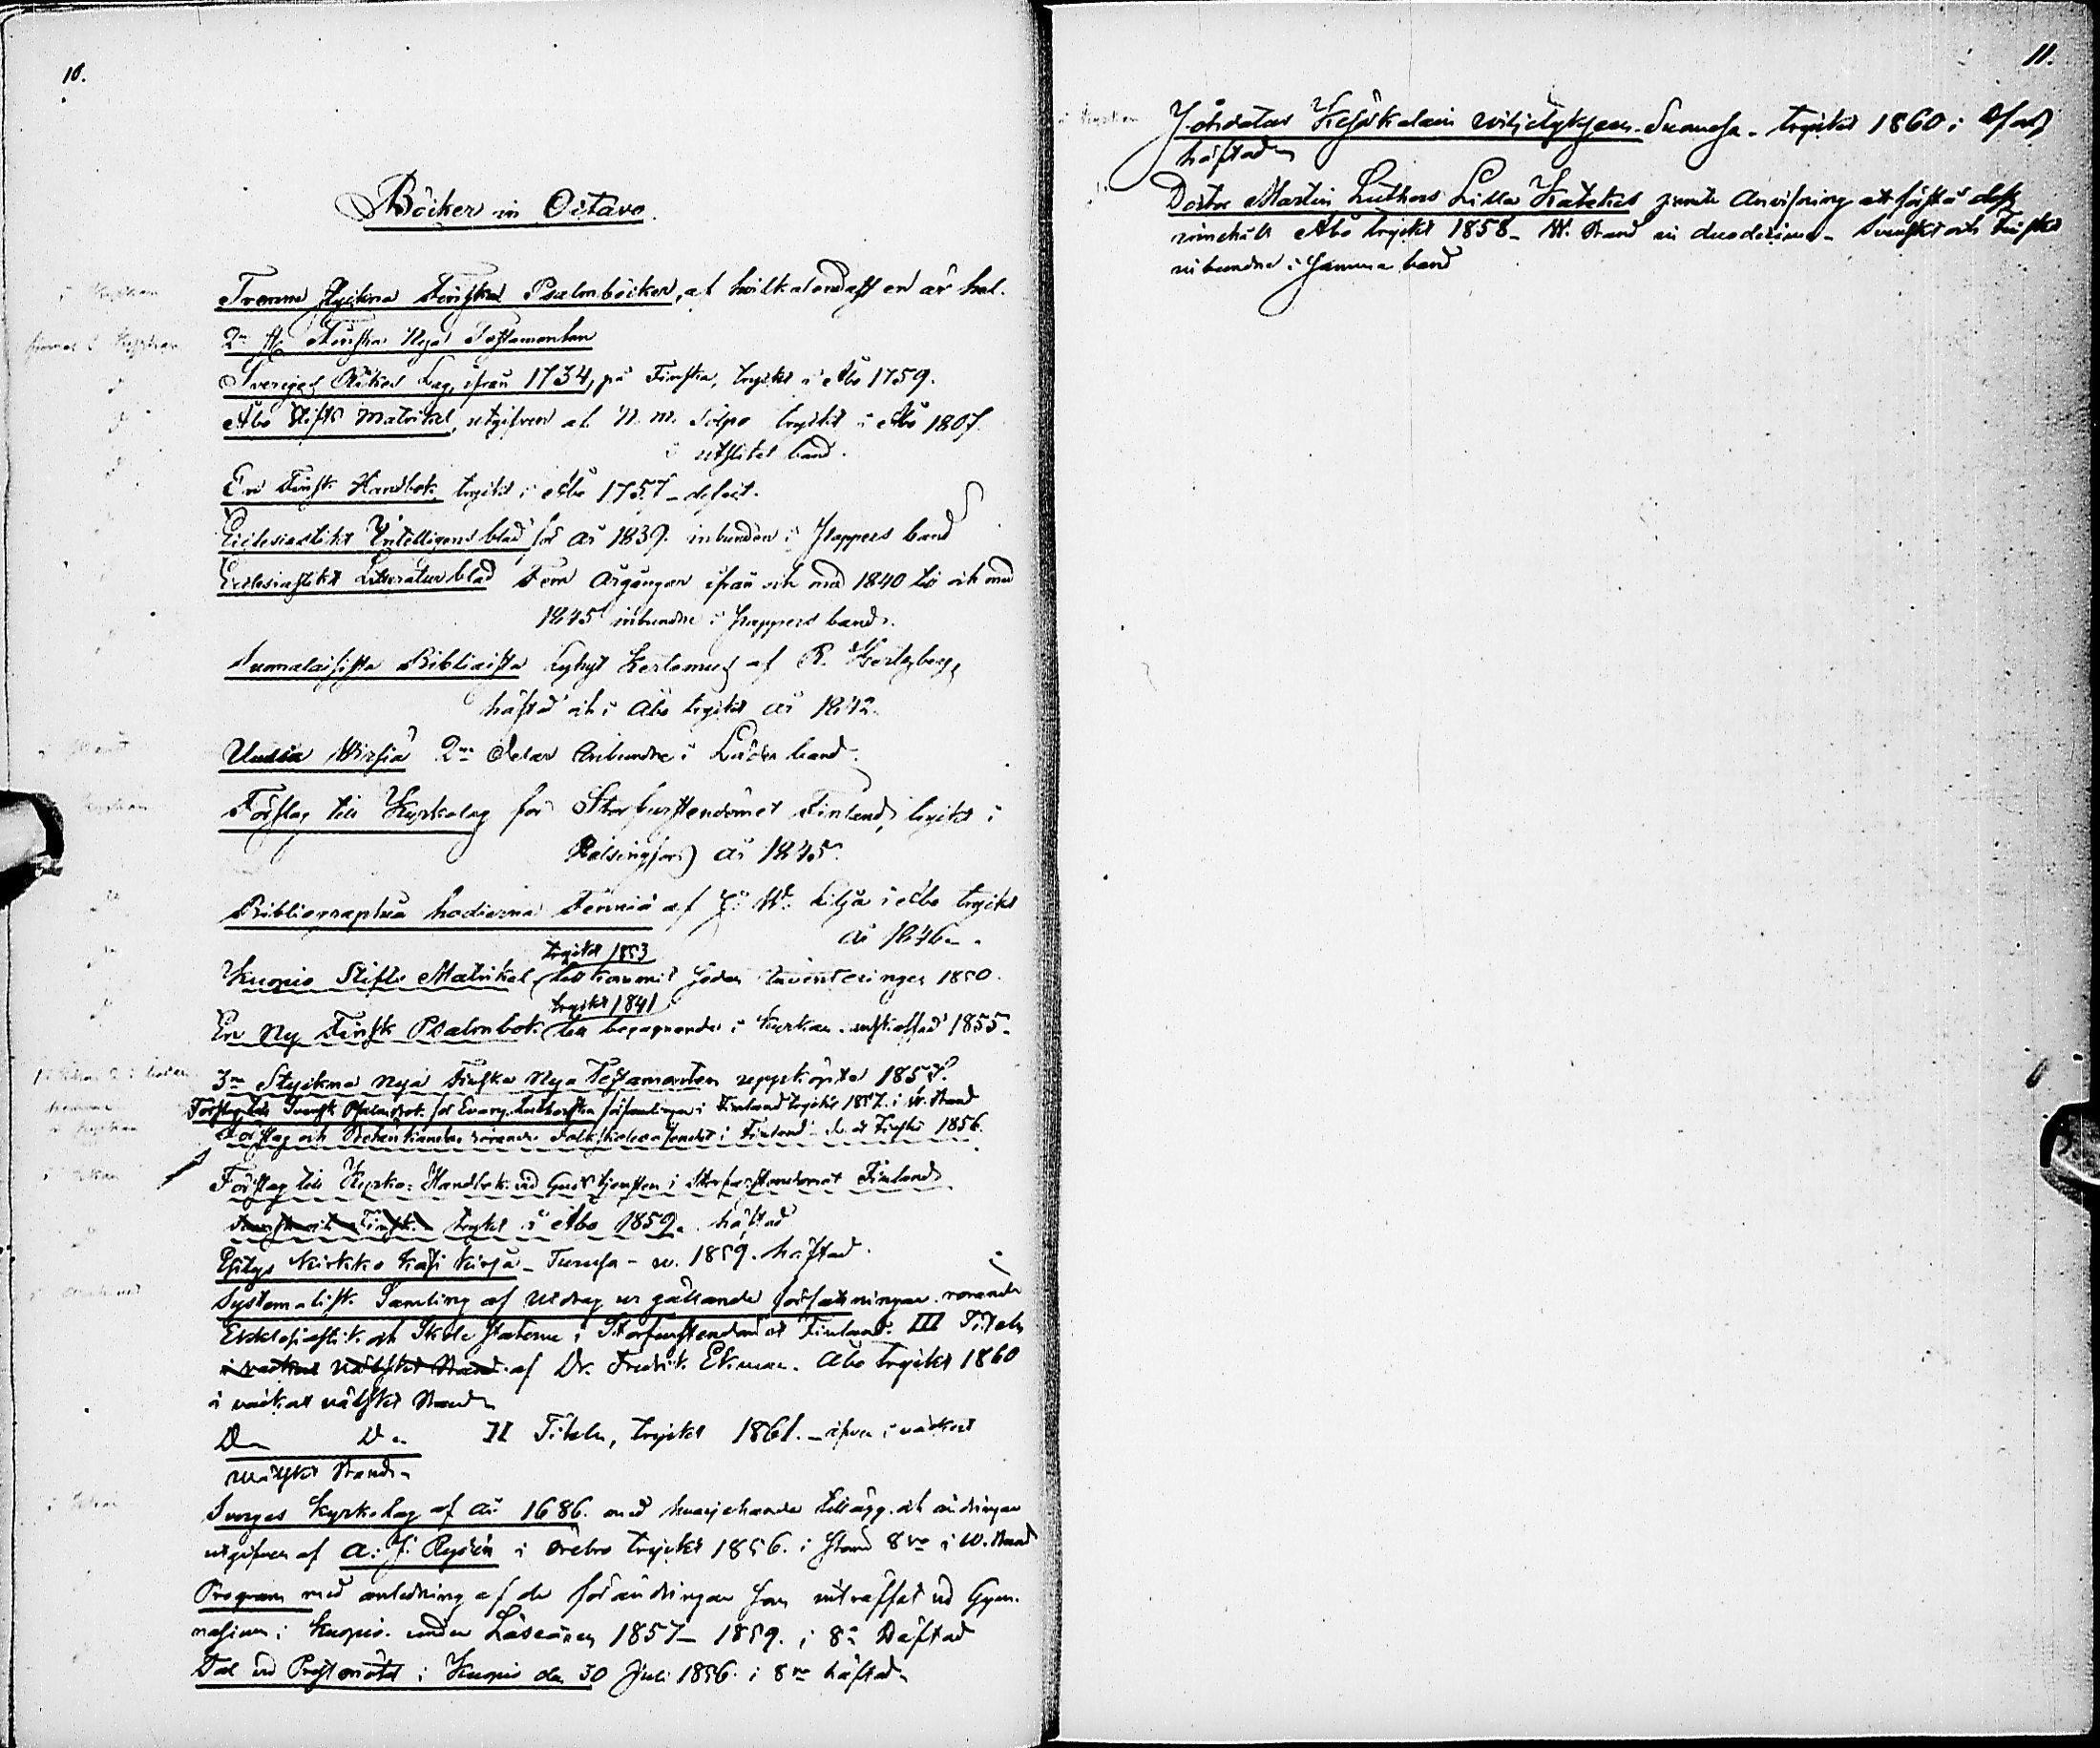 10.
Böcker in Octavo.
Trenne stycken Finska Psalmböcker, af hvilka endast en är hel.
2ne st. Finska Nya Testamenten
Sveriges Rikes Lag, ifrån 1734, på Finska, tryckt i Åbo 1759.
Åbo Stifts Matrikel, utgifven af N. M. Tolpo tryckt i Åbo 1807.
i utslitet band.
En Finsk Handbok, tryckt i Åbo 1757 - defect.
Ecclesiastikt Intelligens blad för år 1839. inbunden i pappers band
Ecclesiastikt Litteratur blad Fem årgångar ifrån och med 1840 til och med
1845 inbundne i pappers band.
Suomalaisista Biblioista Lyhyt kertomus af R. Hertzberg,
häftad och i Åbo tryckt år 1842.
Uusia Wirsiä 2ne delar inbundne i Läder band.
Förslag till Kyrkolag för Storfurstendömet Finland, tryckt i
Helsingfors år 1845.
Bibliographia hodierna Fenniæ af J. W. Lilja i Åbo tryckt
år 1846.
tryckt 1853
Kuopio Stifts Matrikel (till kommit sedan inventeringen 1850.
tryckt 1841
En Ny Finsk Psalmbok (till begagnande i Kyrkan anskaffad 1855.
3ne Stycken nya Finska Nya Testamenten uppköpta 1857.
Förslag till Svensk Psalmbok för Evang. Lutherska församlingar i Finland tryckt 1857. i W. Band
Förslag och Betänkande rörande Folkskoleväsendet i Finland 1856.
Förslag till Kyrko-Handbok vid Gudstjensten i Storfurstendömet Finland
Svensk och Finsk. tryckt i Åbo 1859. häftad
Esitys Kirkko Käsi Kirja - Turusa - w. 1859. häftad.
Systematisk Samling af Utdrag ur gällande författningar rörande
Ecklesiastik och Skole Staterne i Storfurstendömet Finland. III Titeln
i vackert wälskt Band af Dr. Fredrik Ekman. Åbo tryckt 1860
i vackert wälskt Band
Do Do II Titeln, tryckt 1861. - äfven i vackert
wälskt Band.
Sverges Kyrkolag af år 1686. med hvarjehanda tillägg och ändringar
utgifven af A. J. Rydén i Örebro tryckt 1856. i stand 8vo i W. Band
Program med anledning af de förändringar som inträffat vid Gym-
nasium i Kuopio under Läseåren 1857 - 1859. i 8o Häftad
Tal vid Prestmötet i Kuopio den 30 Juli 1856. i 8vo häftad.
11.
i kyrkan
Johdatus Kesäkalain wiljelykseen - Suomesa - tryckt 1860 i
häftad
Doctor Martin Luthers Lilla Katekes jemte Anvisning att förstå dess
innehåll Åbo tryckt 1858 - W. Band in duodecimo - Svenskt och Finskt
inbundne i samma band